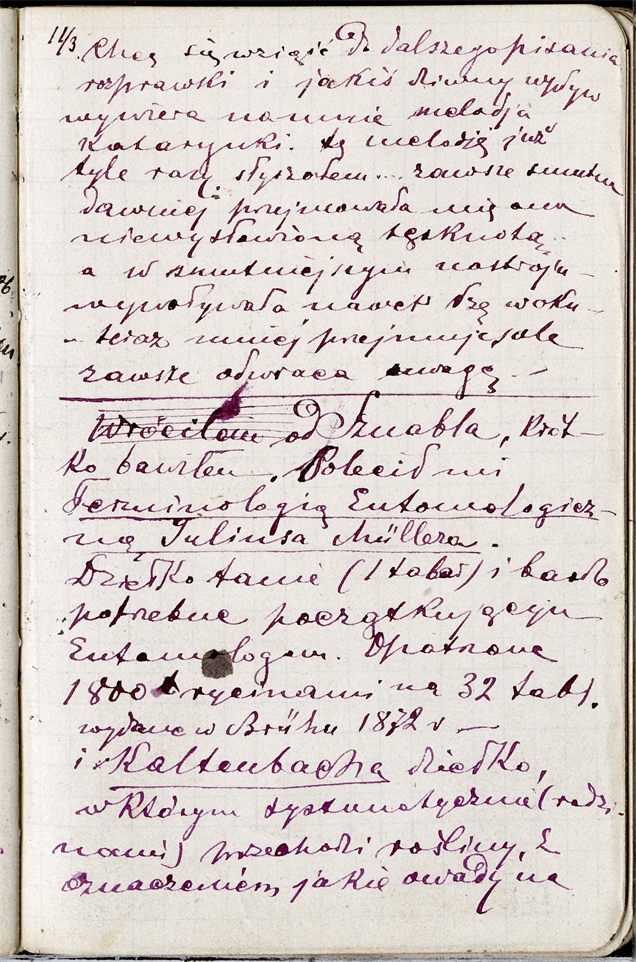 11/3
Chcę się wziąść do dalszego pisania
rozprawki i jakiś dziwny wpływ
wywiera na mnie melodja
Katarynki. tę melodję już
tyle razy słyszałem... zawsze smutna
dawniej przejmowała mię ona
niewysłowioną tęsknotą
a w smutniejszym nastroju –
wywoływała nawet łzę w oku –
– teraz mniej przejmuje ale
zawsze odwraca uwagę. –
Wróciłem od Sznabla, krót–
ko bawiłem. Polecił mi
Terminologią Entomologicz–
ną Juliusa Müllera.
Dziełko tanie (1 talar) i bardo
potrzebne początkującym
Entomologom. Opatrzone
1800 rycinami na 32 tabl.
wydane w Brünn 1872 r –
i Kaltenbacha dziełko,
w którym systematycznie (rodzi–
nami) przechodzi rośliny, z
oznaczeniem jakie owady na